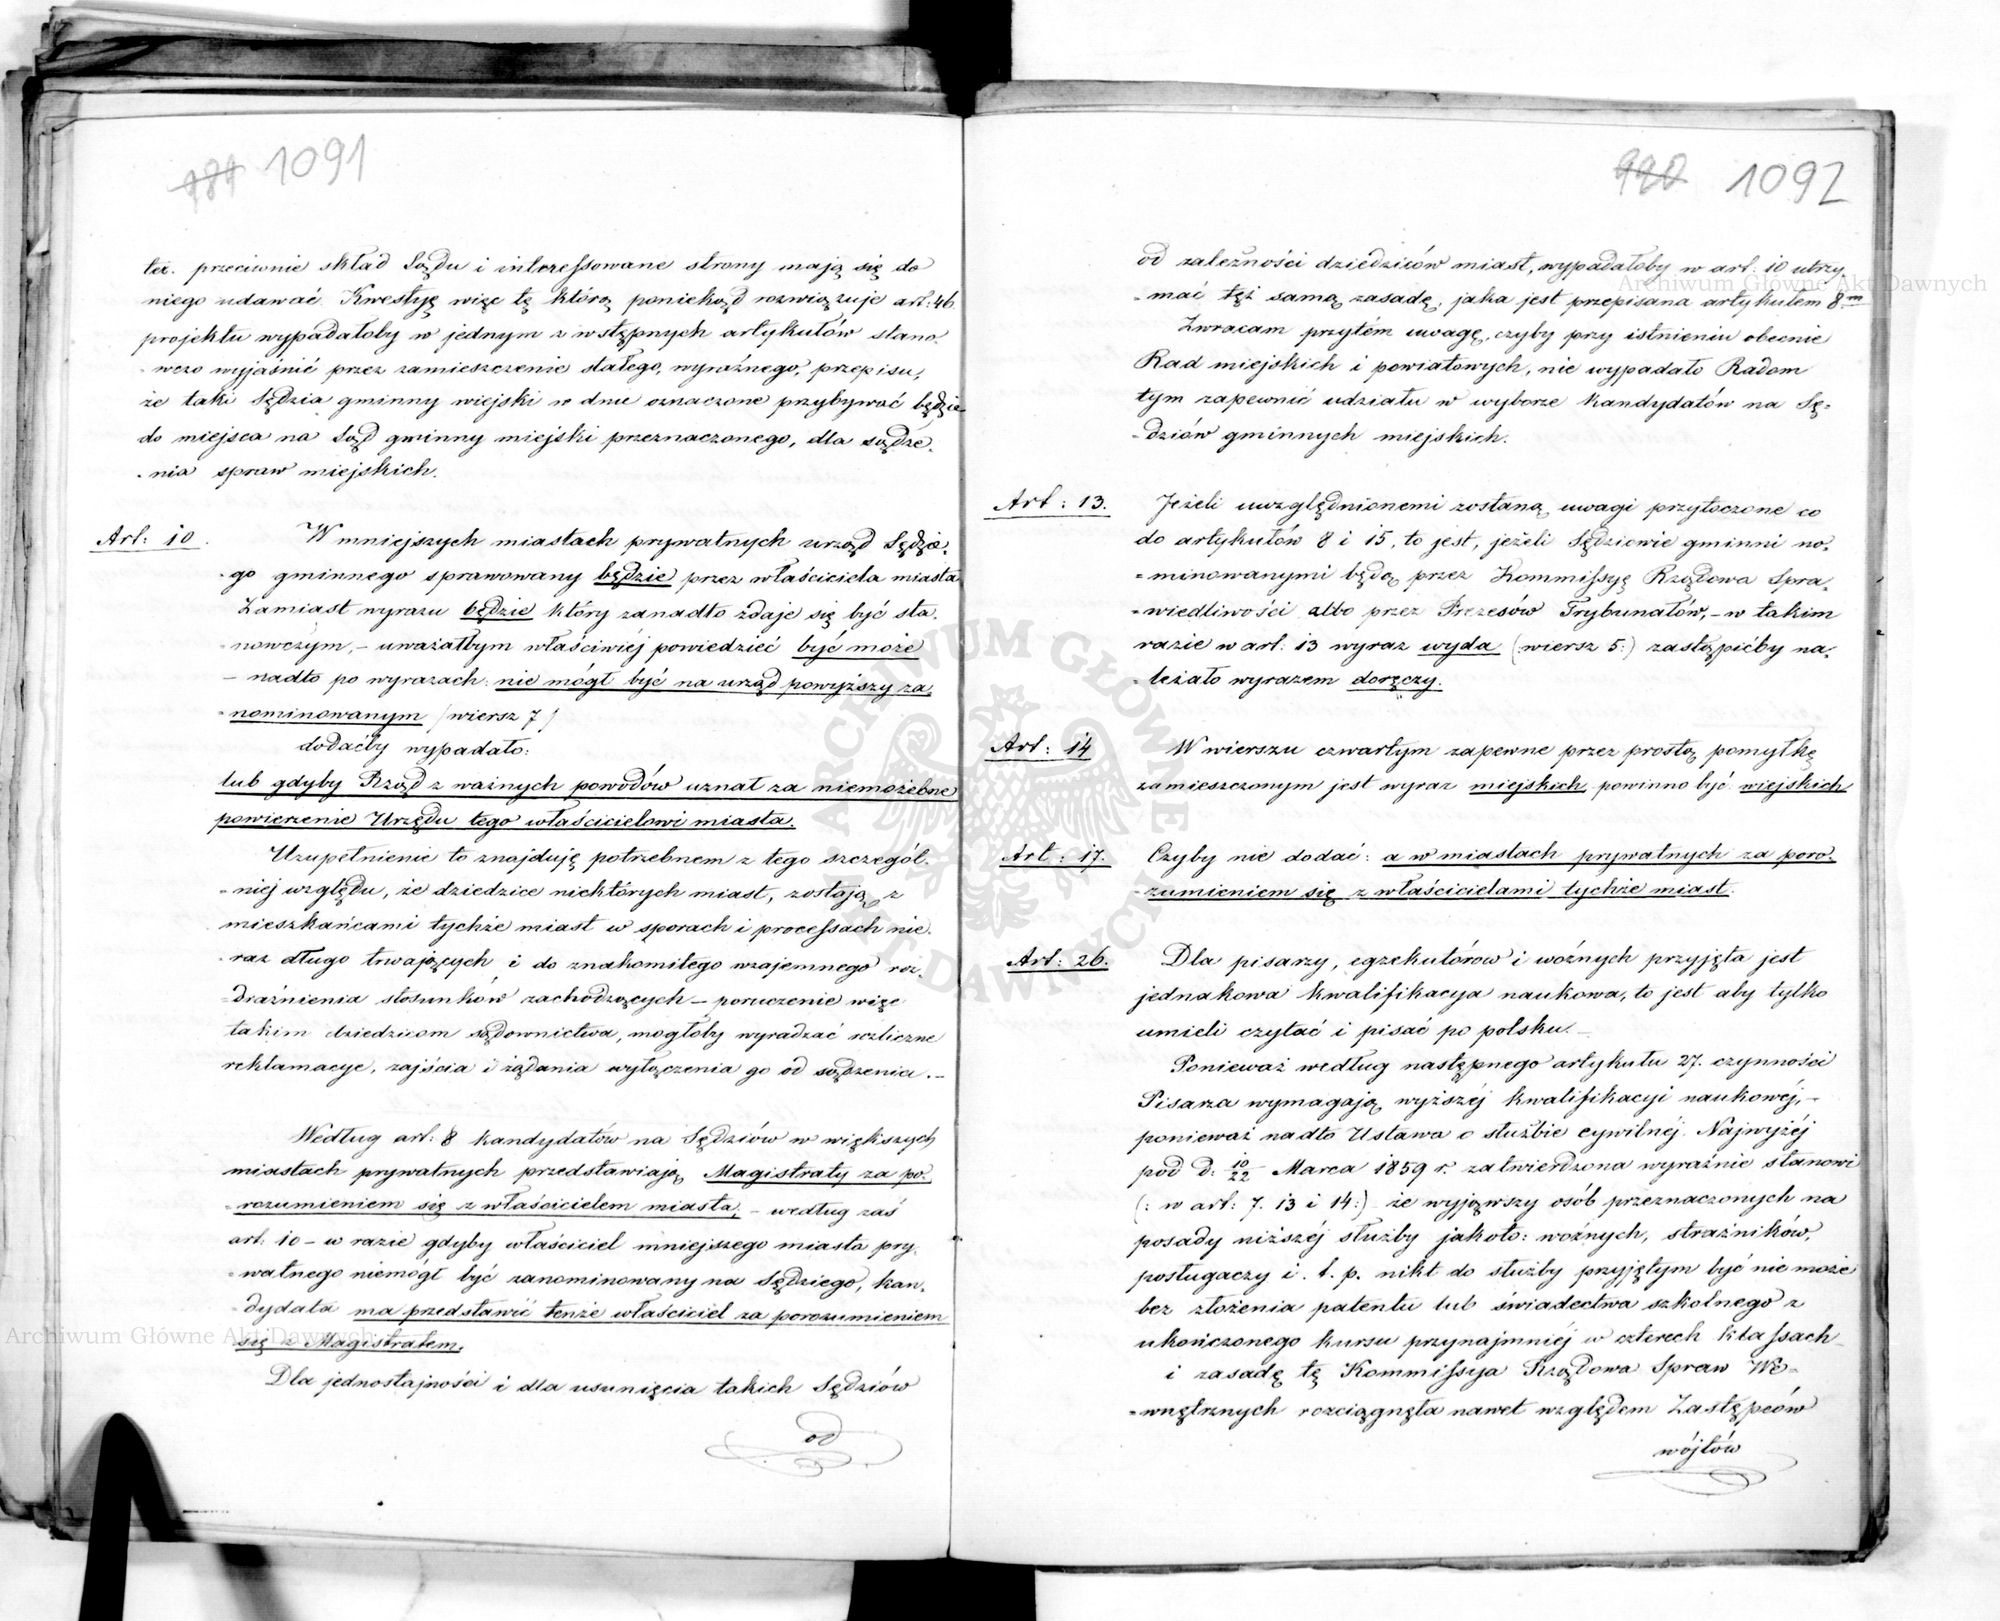 1091
też. przeciwnie skład Sądu i interessowane strony mają się do
niego udawać. Kwestyę więc tę którą poniekąd rozwiązuje art: 46.
projektu wypadałoby w jednym z wstępnych artykułów stano-
-wczo wyjaśnić przez zamieszczenie stałego, wyraźnego, przepisu,
że taki Sędzia gminny wiejski w dnie oznaczone przybywać będzie
do miejsca na Sąd gminny miejski przeznaczonego, dla sądze-
-nia spraw miejskich.
Art: 10.
W mniejszych miastach prywatnych urząd Sędzie-
-go gminnego sprawowany będzie przez właściciela miasta
Zamiast wyrazu będzie który zanadto zdaje się być sta-
-nowczym, - uważałbym właściwiéj powiedzieć być może
- nadto po wyrazach: nie mógł być na urząd powyższy za-
-nominowanym (wiersz 7)
dodaćby wypadało:
lub gdyby Rząd z ważnych powodów uznał za niemożebne
powierzenie Urzędu tego właścicielowi miasta.
Uzupełnienie to znajduję potrzebnem z tego szczegól-
-niej względu, że dziedzice niektórych miast, zostają z
mieszkańcami tychże miast w sporach i processach nie-
-raz długo trwających i do znakomitego wzajemnego roz-
-drażnienia stosunków zachodzących - poruczenie więc
takim dziedzicom sądownictwa, mogłoby wyradzać rozliczne
reklamacye, zajścia i żądania wyłączenia go od sądzenia. -
Według art: 8 kandydatów na Sędziów w większych
miastach prywatnych przedstawiają Magistraty za po-
-rozumieniem się z właścicielem miasta, - według zaś
art: 10 - w razie gdyby właściciel mniejszego miasta pry-
-watnego niemógł być zanominowany na Sędziego, kan-
-dydata ma przedstawić tenże właściciel za porozumieniem
się z Magistratem.
Dla jednostajności i dla usunięcia takich Sędziów
od
1092
od zależności dziedziców miast, wypadałoby w art: 10 utrzy-
-mać téż samą zasadę, jaka jest przepisana artykułem 8m
Zwracam przytém uwagę, czyby przy istnieniu obecnie
Rad miejskich i powiatowych, nie wypadało Radom
tym zapewnić udziału w wyborze kandydatów na Sę-
-dziów gminnych miejskich.
Art: 13.
Jeżeli uwzględnionemi zostaną uwagi przytoczone co
do artykułów 8 i 15, to jest, jeżeli Sędziowie gminni no-
-minowanymi będą przez Kommissyę Rządową Spra-
-wiedliwości albo przez Prezesów Trybunałów, - w takim
razie w art: 13 wyraz wyda (wiersz 5:) zastąpićby na-
-leżało wyrazem doręczy.
Art: 14
W wierszu czwartym zapewne przez prostą pomyłkę
zamieszczonym jest wyraz miejskich powinno być wiejskich
Art: 17.
Czyby nie dodać: a w miastach prywatnych za poro-
-zumieniem się z właścicielami tychże miast.
Art: 26.
Dla pisarzy, egzekutórow i woźnych przyjęta jest
jednakowa kwalifikacya naukowa, to jest aby tylko
umieli czytać i pisać po polsku. -
Ponieważ według następnego artykułu 27. czynności
Pisarza wymagają wyższéj kwalifikacyi naukowéj, -
ponieważ nadto Ustawa o służbie cywilnéj Najwyżéj
pod d: 10/22 Marca 1859 r. zatwierdzona wyraźnie stanowi
(: w art: 7. 13 i 14:) że wyjąwszy osób przeznaczonych na
posady niższéj służby jakoto: woźnych, strażników,
posługaczy i. t. p. nikt do służby przyjętym być nie może
bez złożenia patentu lub świadectwa szkolnego z
ukończonego kursu przynajmniéj w czterech klassach
i zasadę tę Kommissya Rządowa Spraw We-
-wnętrznych rozciągnęła nawet względem Zastępców
wójtów
Archiwum Główne Akt Dawnych
Archiwum Główne Akt Dawnych
ARCHIWUM GŁÓWNE AKT DAWNYCH